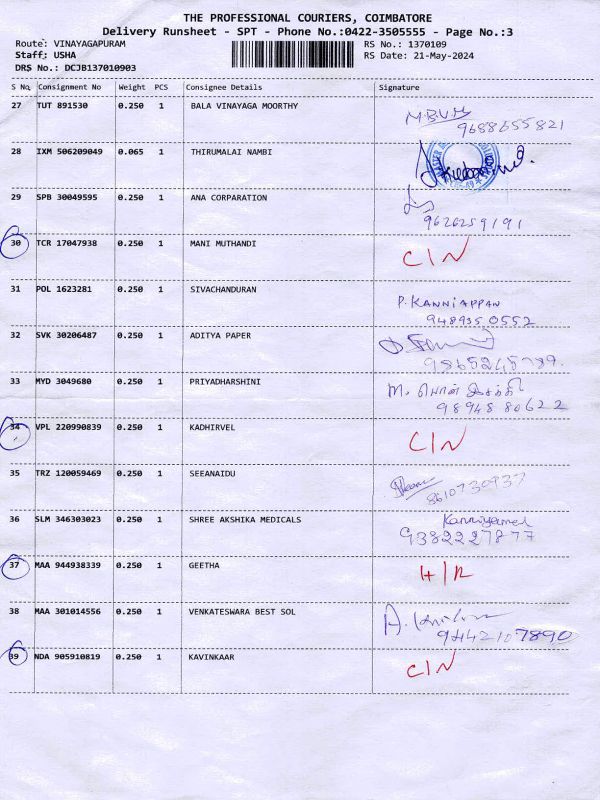 THE PROFESSIONAL COURIERS, COIMBATORE
Delivery Runsheet - SPT - Phone No.:0422-3505555 - Page No.:3
Route: VINAYAGAPURAM RS No.: 1370109
Staff: USHA RS Date: 21-May-2024
DRS No.: DCJB137010903
S No. Consignment No Weight PCS Consignee Details Signature
27 TUT 891530 0.250 1 BALA VINAYAGA MOORTHY M.B.V.M
9688655821
28 IXM 506209049 0.065 1 THIRUMALAI NAMBI
29 SPB 30049595 0.250 1 ANA CORPARATION
9626259191
30 TCR 17047938 0.250 1 MANI MUTHANDI C/N
31 POL 1623281 0.250 1 SIVACHANDURAN P. KANNIAPPAN
9489350552
32 SVK 30206487 0.250 1 ADITYA PAPER
9865245789.
33 MYD 3049680 0.250 1 PRIYADHARSHINI M.
9894880622
34 VPL 220990839 0.250 1 KADHIRVEL C/N
35 TRZ 120059469 0.250 1 SEEANAIDU
8610730937
36 SLM 346303023 0.250 1 SHREE AKSHIKA MEDICALS
9382227877
37 MAA 944938339 0.250 1 GEETHA H/R
38 MAA 301014556 0.250 1 VENKATESWARA BEST SOL A.
9442107890
39 NDA 905910819 0.250 1 KAVINKAAR C/N